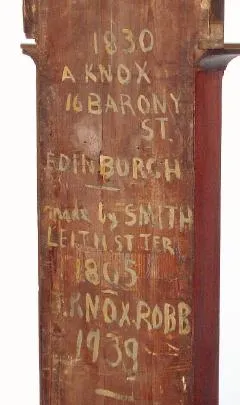 1830
A KNOX
16 BARONY
ST.
EDINBURGH
made by SMITH
LEITH ST TER
1805
KNOX.ROBB
1939